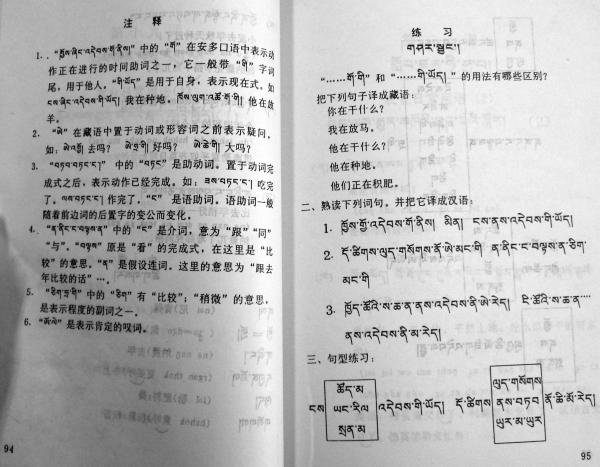 注 释
1. “ཁྱོས་ཞིང་འདེབས་གོ་ནིས།” 中的 “གོ” 在安多口语中表示动
作正在进行的时间助词之一，它一般带 “གི” 字词
尾，用于他人，“གི་ཡོད།” 是用于自身，表示现在式。如
ངས་ཞིང་འདེབས་གི་ཡོད། 我在种地。ཁོས་ལུག་འཚོ་གོ་གི 他在放
羊。
2. “ཨེ” 在藏语中置于动词或形容词之前表示疑问，
如：ཨེ་འགྲོ 去吗？ ཨེ་དྲག 好吗？ ཨེ་ཆེ་གི 大吗？
3. “བཏབ་བཏང་ང་།” 中的 “བཏང” 是助动词。置于动词完
成式之后，表示动作已经完成。如：ཟས་བཏང་ང་། 吃完
了，ལས་བཏང་ང་། 作完了，“ང་” 是语助词。语助词一般
随着前边词的后置字的变公而变化。
4. “ན་ནིང་ང་བལྟས་ན” 中的 “ང” 是介词，意为 “跟” “同”
“与”。“བལྟས” 原是 “看” 的完成式，在这里是 “比
较” 的意思。“ན” 是假设连词。这里的意思为 “跟去
年比较的话” …。
5. “ཅིག་དྲ་གི” 中的 “ཅིག” 有 “比较”；“稍微” 的意思，
是表示程度的副词之一。
6. “ཨོ་ལེ” 是表示肯定的叹词。
94
练 习
གཤར་སྦྱང་།
“……གོ་གི” 和 “……གི་ཡོད།” 的用法有哪些区别？
把下列句子译成藏语：
你在干什么？
我在放马。
他在干什么？
他在种地。
他们正在积肥。
二、熟读下列词句，并把它译成汉语：
1. ཁྱོས་གྲོ་འདེབས་གོ་ནིས། མིན། ངས་ནས་འདེབས་གི་ཡོད།
2. ད་ཚིགས་ལུད་གསོགས་ནོ་ཨེ་མང་གི ན་ནིང་ང་བལྟས་ན་ཅིག་
མང་གི
3. ཁྱོད་ཚོའི་ས་ཆ་ན་ནས་འདེབས་ནི་ཨེ་རེད། ངེད་ཚོའི་ས་ཆ་ན་
ནས་འདེབས་ནི་མ་རེད།
三、句型练习：
ཚོད་མ
ངས ཡང་རིལ འདེབས་གི་ཡོད།
སྲན་མ
ལུད་གསོགས
ད་ཚིགས ནས་བཏབ ནོ་ཆི་མོ་རེད།
ཡུར་མ་ཡུར
95